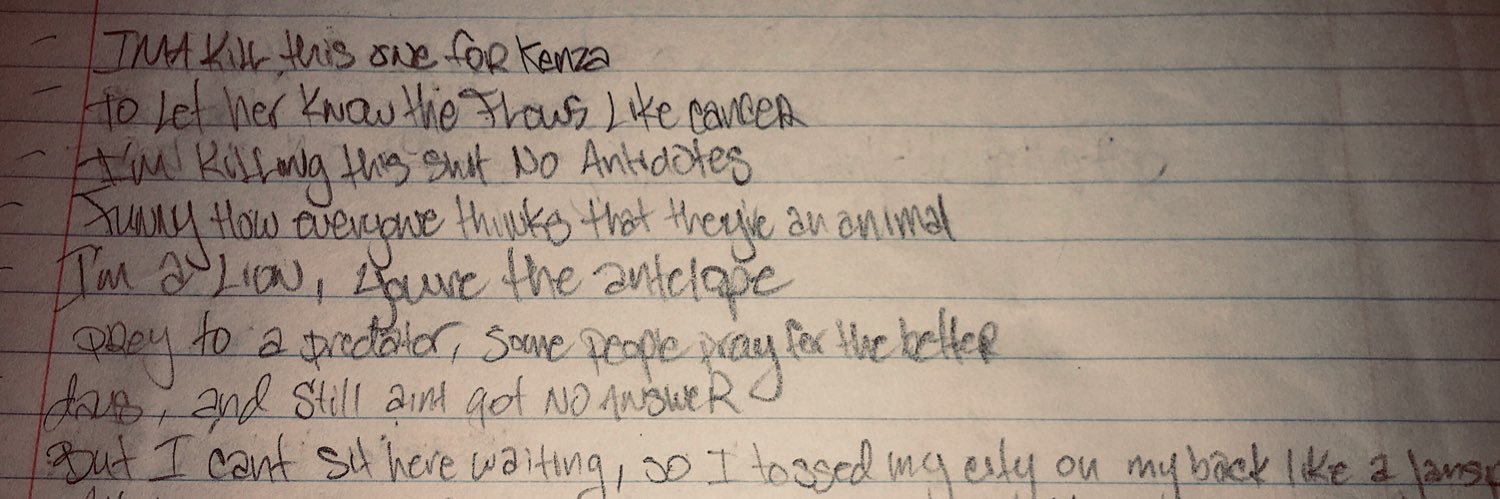 - IMA Kill this one for Kenza
- to Let her know the Flows Like cancer
- I'm Killing this shit No Antidotes
- Funny How everyone thinks that they're an animal
- I'm a Lion, you're the antelope
prey to a predator, some people pray for the better
days, and still aint got no answer
But I cant sit here waiting, so I tossed my city on my back like a